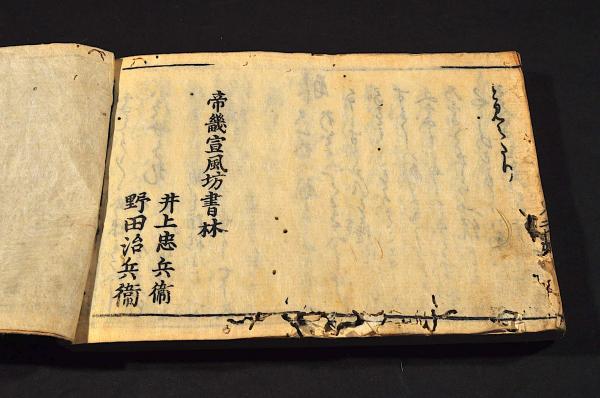 帝畿宣風坊書林
井上忠兵衛
野田治兵衞